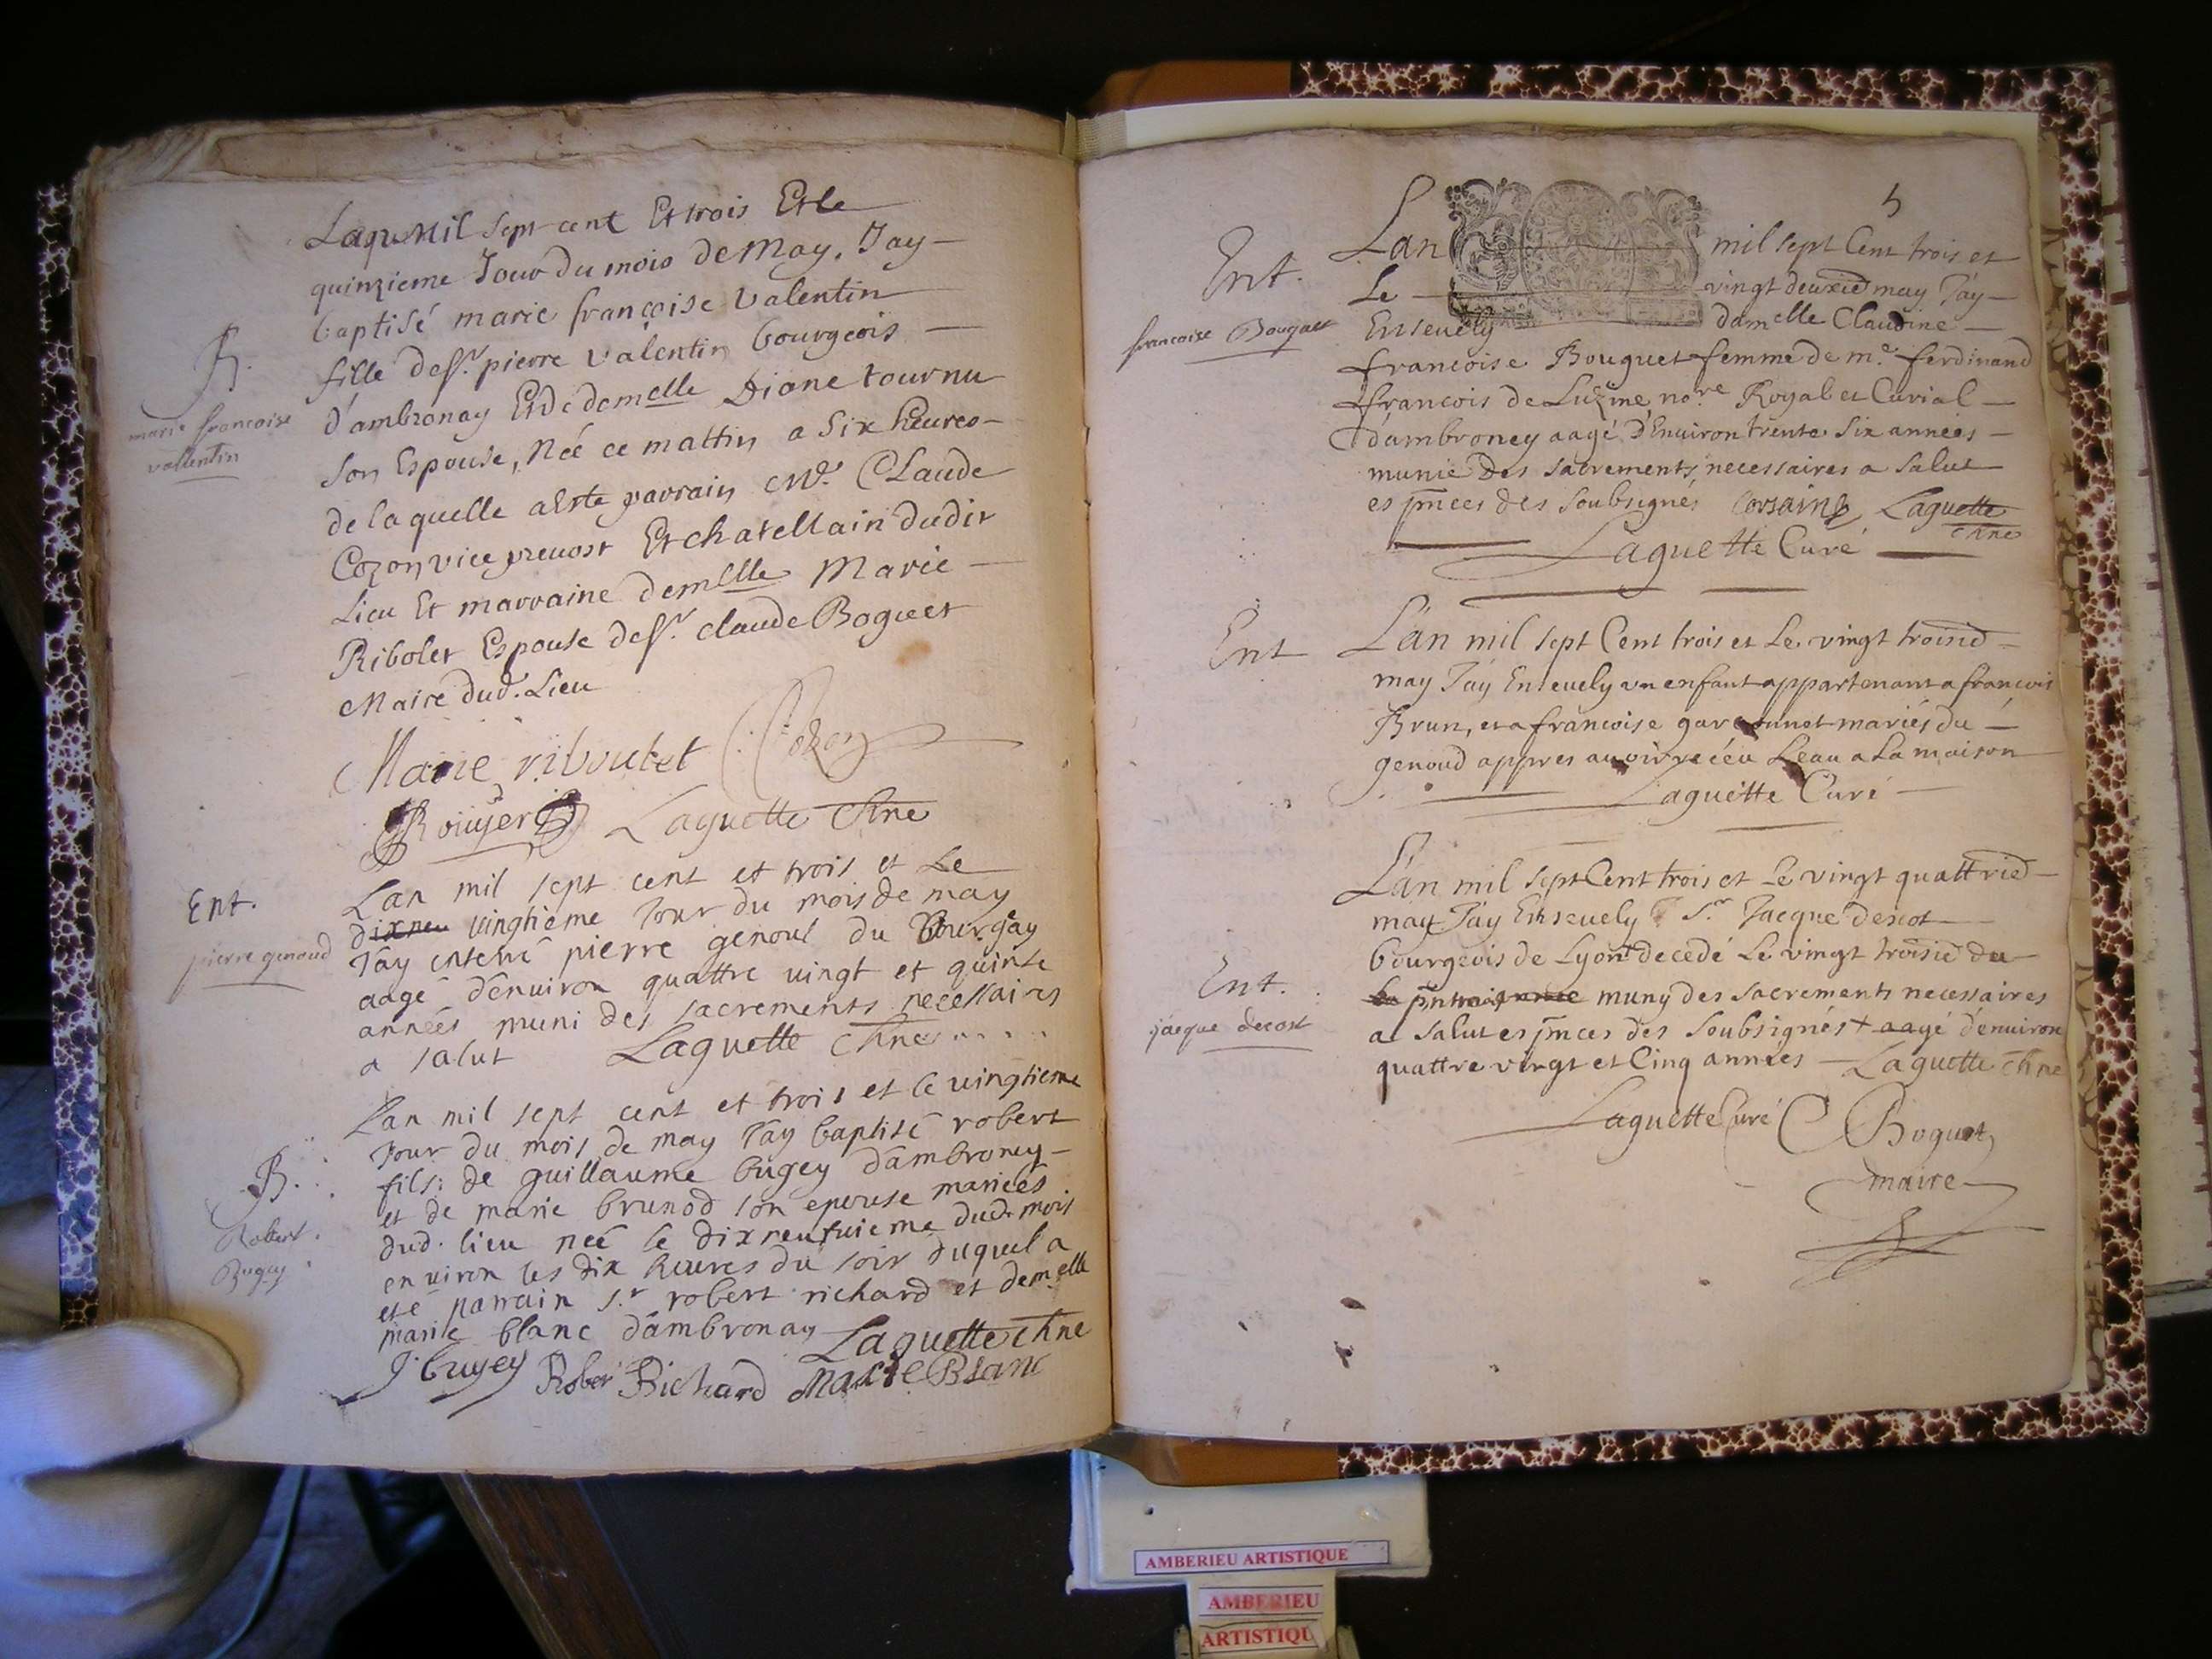 Laqu Mil Sept cent Et trois Et le
quinzieme Jour du mois de May, Jay
baptisé marie françoise Valentin
fille de sr. pierre valentin bourgeois
d'ambronay Et de demelle Diane tournu
son Espouse, Née ce mattin a Six heures
de laquelle a Este parrain Mr. Claude
Cozon vice prevost Et chatellain dudit
Lieu Et marraine demelle Marie
Ribolet Espouse de sr. claude Boguet
Maire dud. Lieu
B.
marie francoise
vallentin
Marie riboulet Cozon
Rouyer Laguette chne
Ent.
pierre genoud
Lan mil sept cent et trois et Le
dixneu vingtième Jour du mois de may
J'ay enterré pierre genoul du Bourgay
aagé d'enuiron quattre vingt et quinse
années muni des sacrements necessaires
a salut Laguette chne
B.
Robert
Bugey
Lan mil sept cent et trois et le vingtieme
Jour du mois de may J'ay baptisé robert
fils: de guillaume bugey d'ambroney
et de marie brunod son epouse mariées
dud. lieu neé le dixneufuieme dud. mois
enuiron les dix heures du soir duquel a
eté parrain s.r robert richard et dem.elle
marie blanc d'ambronay Laguette chne
J. bugey Rober Richard Marie Blanc
5
Ent.
francoise Bouguet
Lan mil sept Cent trois et
Le vingt deuxie may J'ay
Enseuely damelle Claudine
francoise Bouguet femme de me. ferdinand
francois de Luzine no.re Royal et Curial
d'ambroney aagé d'Enuiron trente Six années
munie des sacrements necessaires a salut
es pnces des soubsignés Corsaing Laguette
chne
Laguette Curé
Ent
L'an mil sept Cent trois et Le vingt troisie
may J'ay Enseuely un enfant appartenant a francois
Brun, et a francoise mariés du
genoud appres auoir receu L'eau a La maison
Laguette Curé
Ent.
jacque decost
L'an mil sept Cent trois et Le vingt quattrie
may J'ay Enseuely Sr. Jacque descot
bourgeois de Lyon decedé Le vingt troisie du
muny des sacrements necessaires
a salut es pnces des soubsignés + aagé d'enuiron
quattre vingt et Cinq années Laguette chne
Laguette Curé C Boguet
maire
AMBERIEU ARTISTIQUE
AMBERIEU
ARTISTIQU